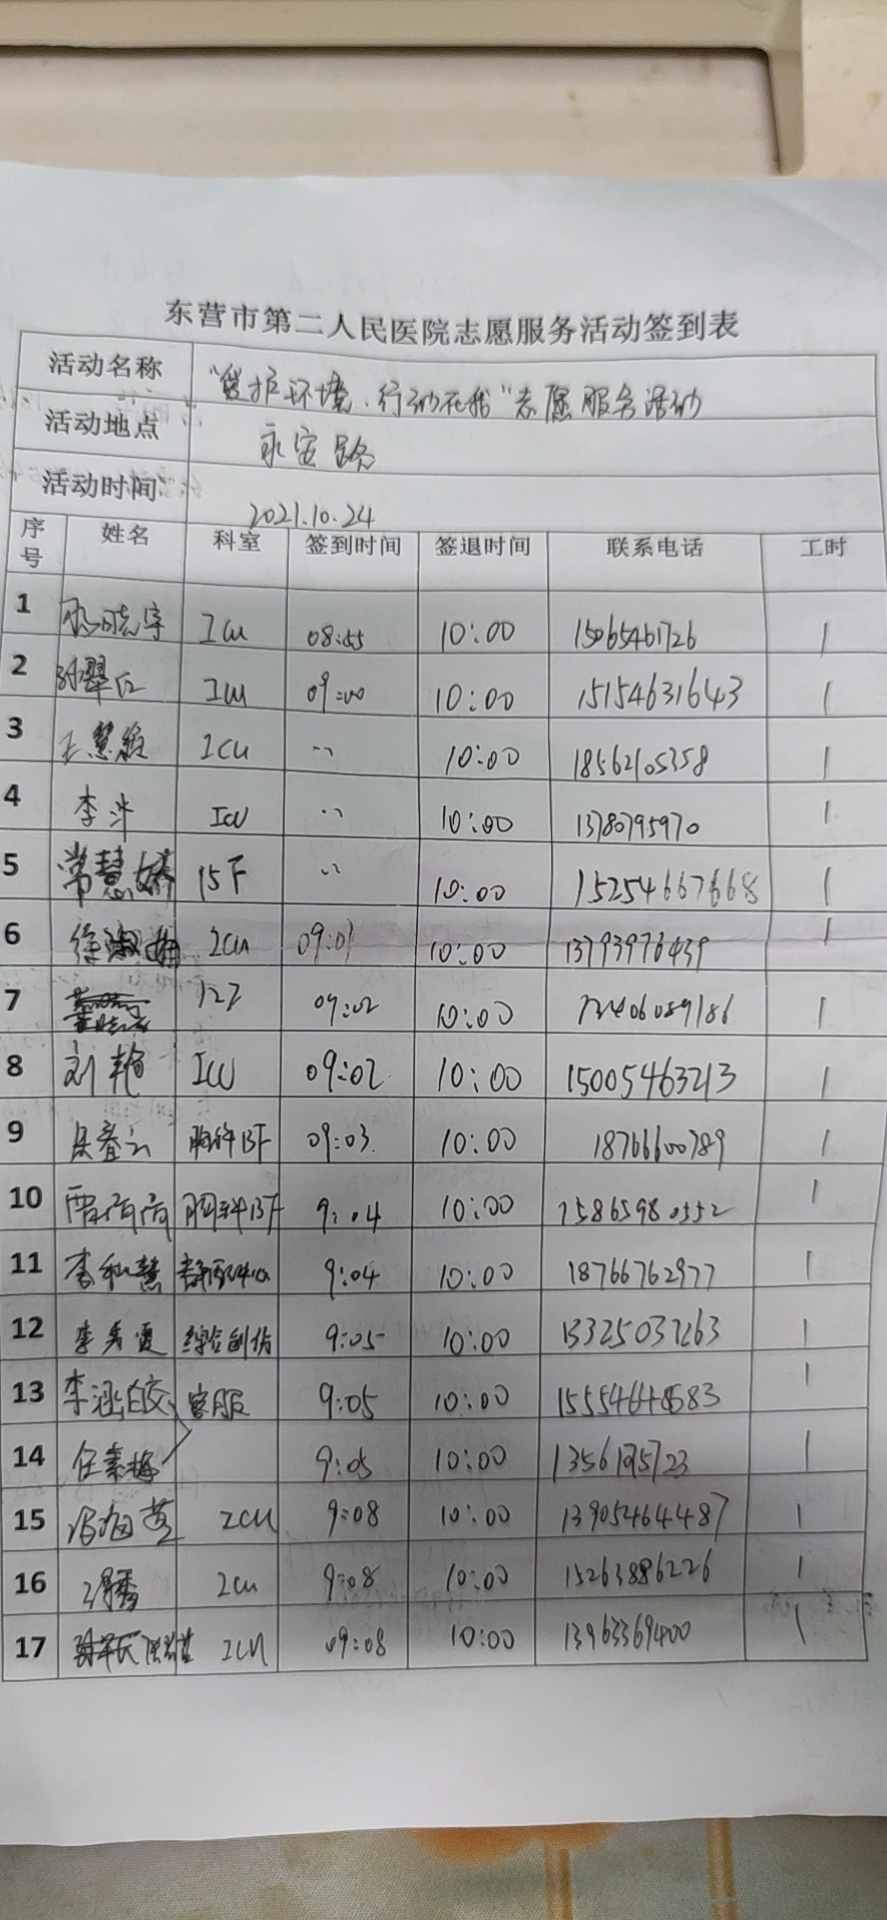 东营市第二人民医院志愿服务活动签到表
活动名称 "爱护环境、行动在我"志愿服务活动
活动地点 永安路
活动时间 2021.10.24
序号 姓名 科室 签到时间 签退时间 联系电话 工时
1 ICU 08:55 10:00 15065461726 1
2 ICU 09:00 10:00 15154631643 1
3 ICU 〃 10:00 18562105358 1
4 李 ICU 〃 10:00 13780795970 1
5 常慧娇 15F 〃 10:00 152546676668 1
6 徐淑娟 ICU 09:01 10:00 13793976439 1
7 09:02 10:00 1
8 刘艳 ICU 09:02 10:00 15005463213 1
9 胸科13F 09:03 10:00 18766600789 1
10 胸科13F 9:04 10:00 15865980552 1
11 9:04 10:00 18766762977 1
12 李秀 综合创伤 9:05 10:00 15325037263 1
13 李涵皎 客服 9:05 10:00 1
14 任素梅 9:05 10:00 1
15 ICU 9:08 10:00 13905464487 1
16 ICU 9:08 10:00 15263886226 1
17 ICU 09:08 10:00 13963369400 1